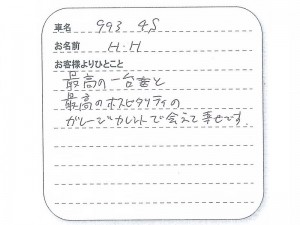 車名 993 4S
お名前 H.H
お客様よりひとこと
最高の一台をと
最高のホスピタリティの
ガレージカレントで会えて幸せです。